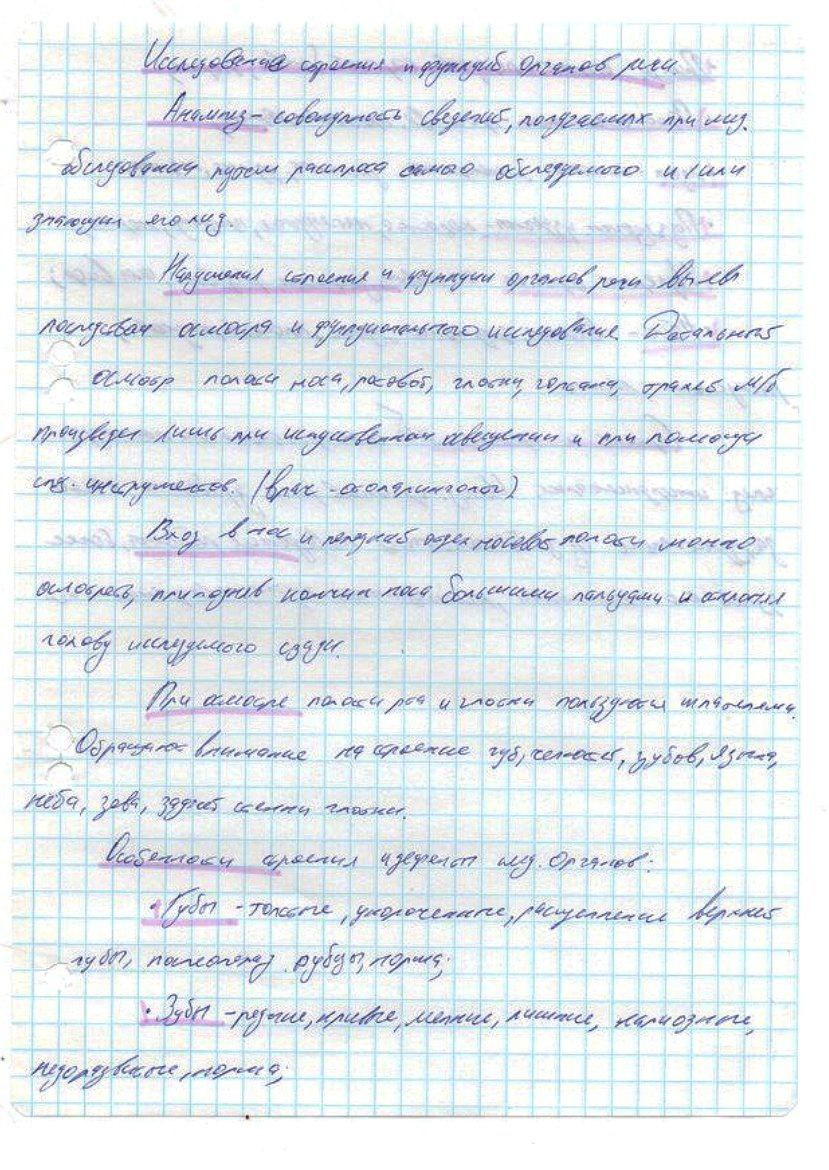 Исследование строения и функций органов речи
Анамнез - совокупность сведений, получаемых при мед.
обследовании путем расспроса самого обследуемого и/или
знающих его лиц.
Нарушения строения и функции органов речи выявл
посредствам осмотра и функционального исследования. Детальный
осмотр полости носа, ротовой, глотки, гортани, трахеи м/б
произведен лишь при искуственном освещении и при помощи
спец. инструментов. (врач - отоларинголог)
Вход в нос и передний отдел носовой полости можно
осмотреть, приподняв кончик носа большими пальцами и отклоняя
голову исследуемого сзади.
При осмотре полости рта и глотки пользуются шпателями.
Обращают внимание на строение губ, челюстей, зубов, языка,
нёба, зева, задней стенки глотки.
Особенности строения и дефекты след. органов:
• Губы - толстые, укороченные, расщепление верхней
губы, послеоперац. рубцы, норма;
• Зубы - редкие, кривые, мелкие, лишние, кариозные,
недоразвитые, норма;